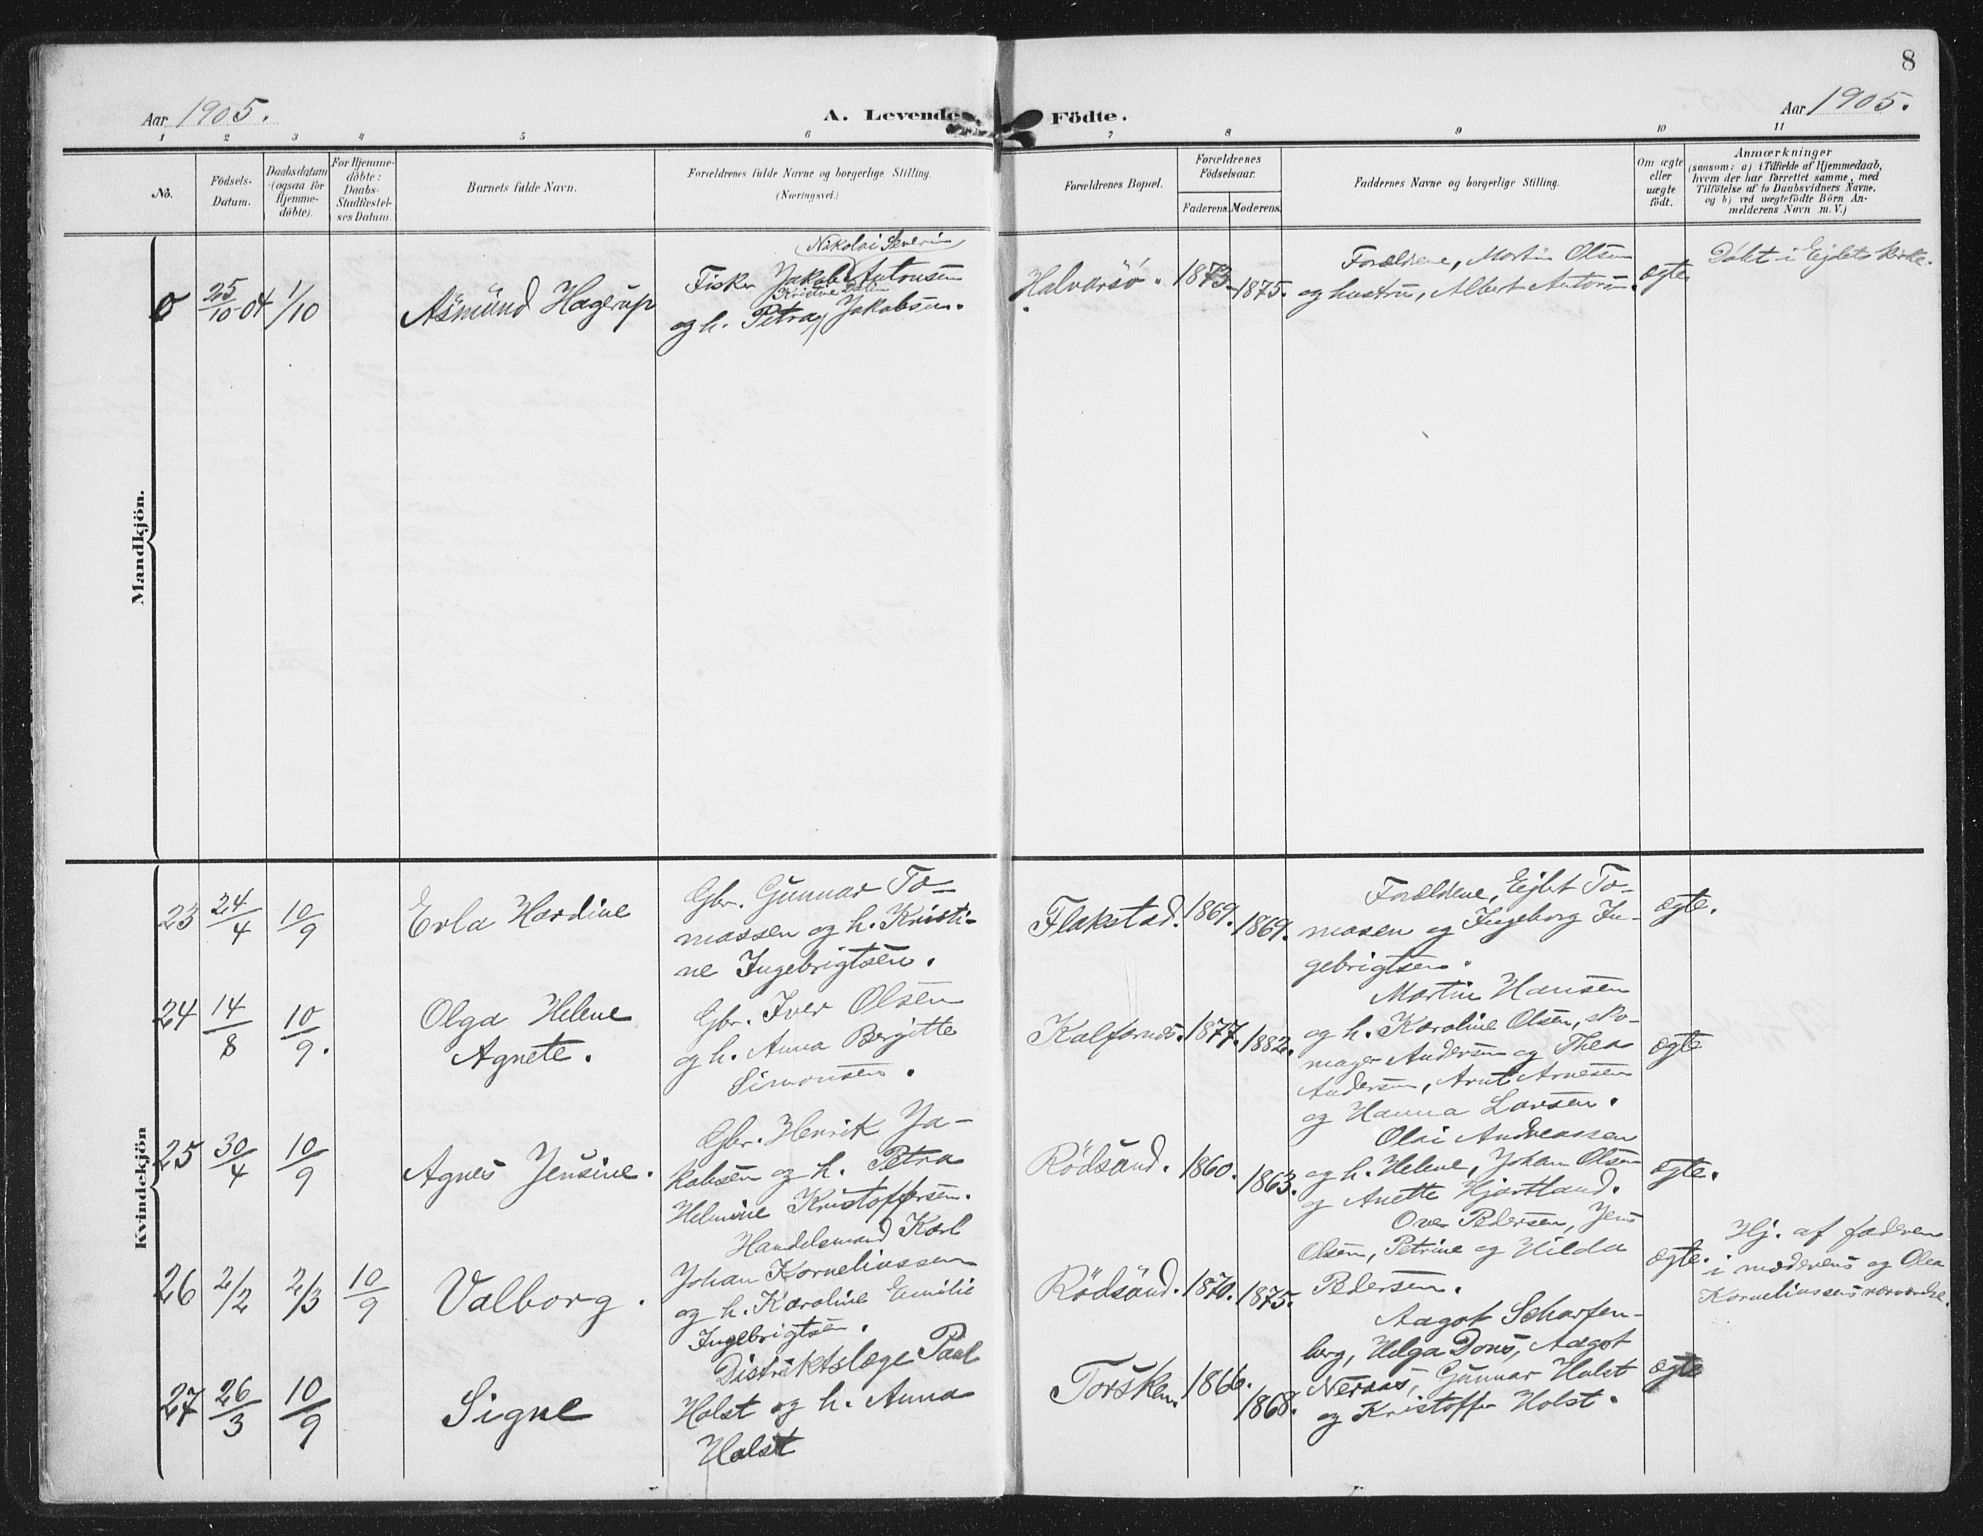 8
Aar 1905.
A. Levende Födte.
Aar 1905.
1 2 3 4 5 6 7 8 9 10 11
No.
Födsels-
Datum.
Daabsdatum
(ogsaa for
Hjemme-
døbte).
For Hjemme-
döbte:
Daabs-
Stadfæstel-
ses Datum.
Barnets fulde Navn.
Forældrenes fulde Navne og borgerlige Stilling.
(Næringsvei.)
Forældrenes Bopæl.
Forældrenes
Födselsaar.
Faderens. Moderens.
Faddernes Navne og borgerlige Stilling.
Om ægte
eller
uægte
født.
Anmærkninger
(saasom: a) i Tilfælde af Hjemmedaab,
hvem der har forrettet samme, med
Tilföielse af to Daabsvidners Navne.
og b) ved uægtefödte Börn An-
melderens Navn m. V.)
Mandkjön.
0 25/10-04 1/10 Asmund Hagerup
Nikolai Severin
Fisker Jakob Antonsen
Kristine
og h. Petra Jakobsen.
Halvarsö. 1873. 1875.
Forældrene, Martin Olsen
og hustru, Albert Antons.
ægte
Døbt i Ejdets kirke.
Kvindekjön
23 24/4 10/9 Erla Hardine
Gbr. Gunnar To-
massen og h. Kristi-
ne Ingebrigtsen.
Flakstad. 1869. 1869.
Forældrene, Ejlert To-
masen og Ingeborg In-
gebrigtsen.
ægte.
24 14/8 10/9. Olga Helene
Agnete.
Gbr. Iver Olsen
og h. Anna Bergitte
Simonsen.
Kalfarnes. 1877. 1882.
Martin Hansen
og h. Karoline Olsen, sko-
mager Andersen og Thea
Andersen, Arnt Arnesen
og Hanna Larsen.
ægte
25 30/4 10/9 Agnes Jensine.
Gbr. Henrik Ja-
kobsen og h. Petra
Helmine Kristoffersen.
Rödsand. 1860. 1863.
Olai Andreassen
og h. Helene, Johan Olsen
og Anette Hjartland.
ægte.
26 2/2 2/3 10/9 Valborg.
Handelsmand Karl
Johan Korneliussen
og h. Karoline Emilie
Ingebrigtsen.
Rödsand. 1870. 1875.
Over Pedersen, Jens
Olsen, Petrine og Hilda
Pedersen.
ægte.
Hj. af faderen
i moderens og Olea
Korneliussens nærværelse.
27 26/3 10/9 Signe
Distriktslæge Paul
Holst og h. Anna
Holst
Torsken. 1866. 1868.
Aagot Scharfen-
berg, Helga Dons, Aagot
Neraas, Gunnar Holst
og Kristoffer Holst.
ægte